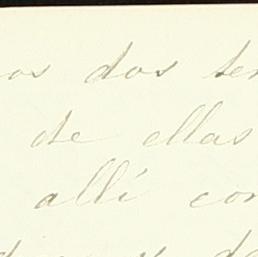 os dos ter
de ellas
allí con